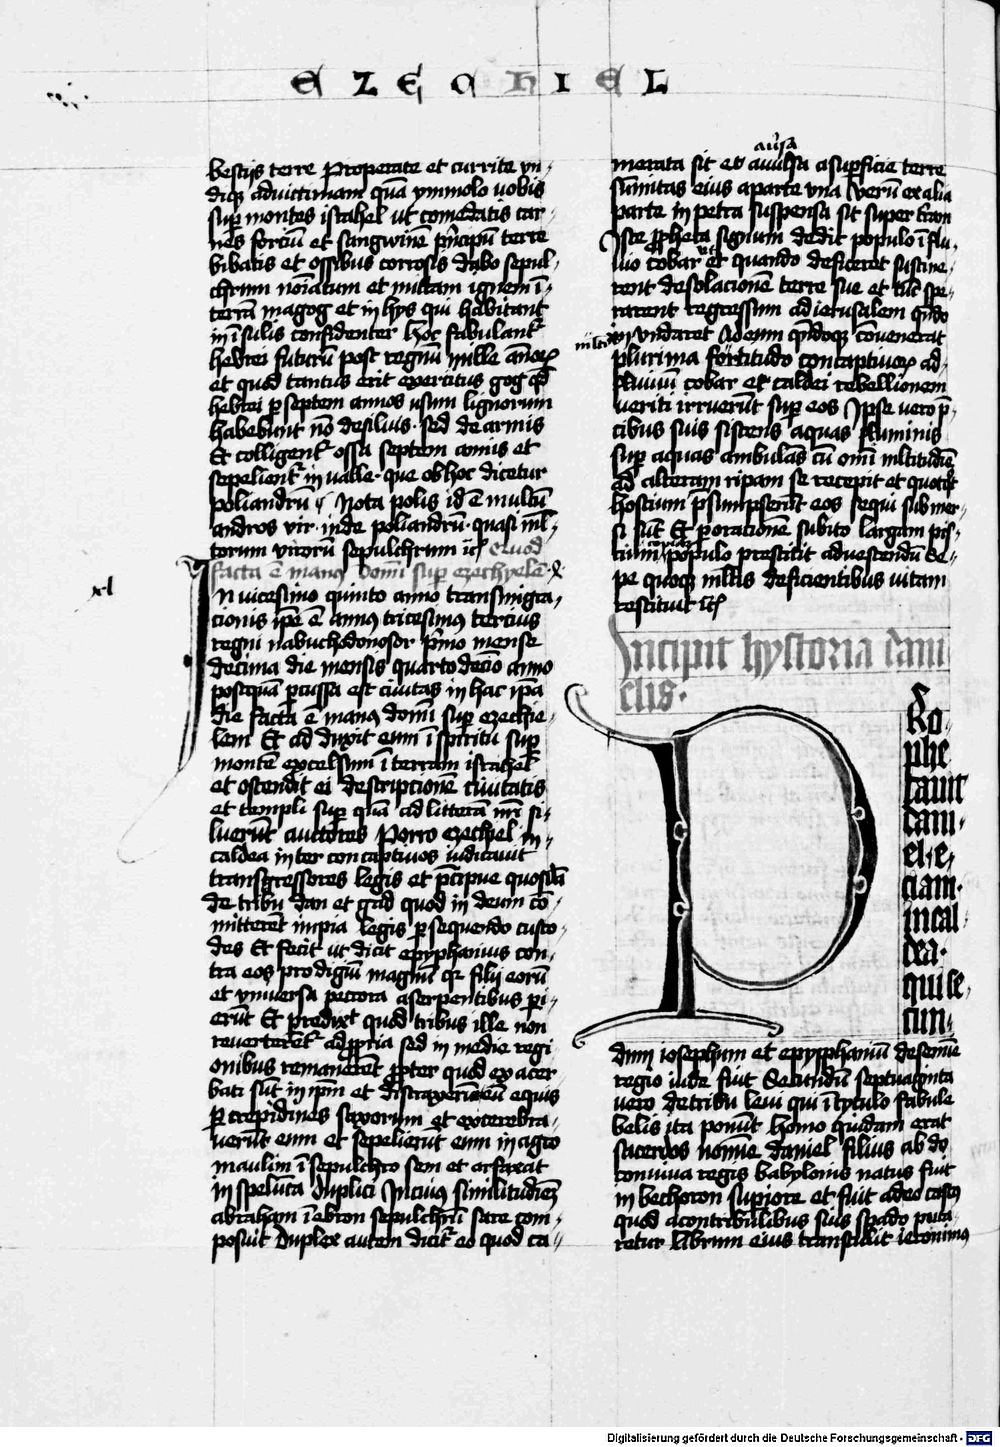 EZECHIEL
bestijs terre Properate et currite vn-
diqȝ ad victimam quā ymmolo uobis
sup montes israhel ut comedatis car-
nes fortiū et sangwinē pͥncipū terre
bibatis et ossibus corrosis dabo sepul-
chrum noīatum et mittam ignem ī
terrā magog et in hys qui habitant
in īsulis confidenter hoc fabulantᷣ
hebrei futurū post regnū mille annoꝝ
et quod tantus erit exercitus gog qd
hebrei ꝑ septem annos usum lignorum
habebunt nō de siluis · sed de armis
Et colligentᷣ ossa septem annis et
sepelientᷣ in ualle · que ob hoc dicetur
poliandrū Nota polis id ē multū
andros vir · inde poliandrū · quasi ml-
torum virorū sepulchrum ic̄ Quod
facta ē manꝰ domī sup ezechyelē
xl
IN uicesimo quinto anno transmigra-
cionis ipse ē annus tricesimus tercius
regni nabuchodonosor pͥmo mense
decima die mensis quarto decīo anno
postquā ꝑcussa est ciuitas in hac ipa
die facta ē manꝰ domī sup ezechie-
lem Et adduxit eum ī spiritu sup
montē excelsum ī terram israhel
et ostendit ei descriptionē ciuitatis
et templi sup quā ad litterā nrī si-
luerūt auctores Porro ezechiel in
caldea inter concaptiuos iudicauit
transgressores legis et pͥcipue quosdā
de tribu dan et gad quod in deum cō-
mitterēt impia legis ꝑsequendo custo-
des Et fecit ut dicit epyphanius con-
tra eos prodigiū magnū qr filii eorū
et vniuersa pectora a serpentibus ꝑi-
erūt Et predixit quod tribus ille non
reuerterētᷣ ad ꝓpria sed in medie regi
onibus remanerēt ꝓpter quod exacer
bati sūt in ipm et distraxerūt eū equis
ꝑ crepidines saxorum et excerebra-
uerūt eum et sepelierūt eum in agro
maulim ī sepulchro sem et arfaxat
in spelūca duplici In cuius similitudīeȝ
abraham ī ebron sepulchrū sare com-
posuit duplex autem dicitᷣ eo quod ca-
ausa
merata sit et auulsa a supficie terre
sūmitas eius a parte vna verū ex alia
parte in petra suspensa sit super tram
Iste ꝓpheta signum dedit populo ī flu-
uio cobar ut quando deficeret sustine-
rent desolacionē terre sue et tūc spe-
rarent regressum ad ierusalem qn̄do
in vndaret Ad eum qn̄doqȝ cōuenerat
plurima fortitudo concaptiuoꝝ ad
fluuiū cobar et caldei rebellionem
ueriti irruerūt sup eos Ipse uero p̄-
cibus suis sistens aquas fluminis
sup aquas ambulās cū omī mltitudīe
ad alteram ripam se recepit et quotqt
hostium p̄sumpserūt eos sequi submer-
si sūt Et ꝑ oracionē subito largam pis-
cium populo prestitit ad uescendū Se-
pe quoqȝ mltis deficientibus uitam
restituit ic̄
Incipit hystoria dani
elis ·
PRo-
phe
tauit
dani-
el · e-
ciam ·
in cal-
dea ·
qui se-
cun-
dum iosephum et epyphaniū de semīe
regio iude fuit Secundū septuaginta
uero de tribu leui qui ī tytulo fabule
belis ita ponūt homo quidam erat
sacerdos nomīe daniel filius abdo
conuiua regis babylonis natus fuit
in bethoron supiore et fuit adeo castꝰ
quod a contribulibus suis spado puta-
retur librum eius transtulit ieronimus
Digitalisierung gefördert durch die Deutsche Forschungsgemeinschaft - DFG